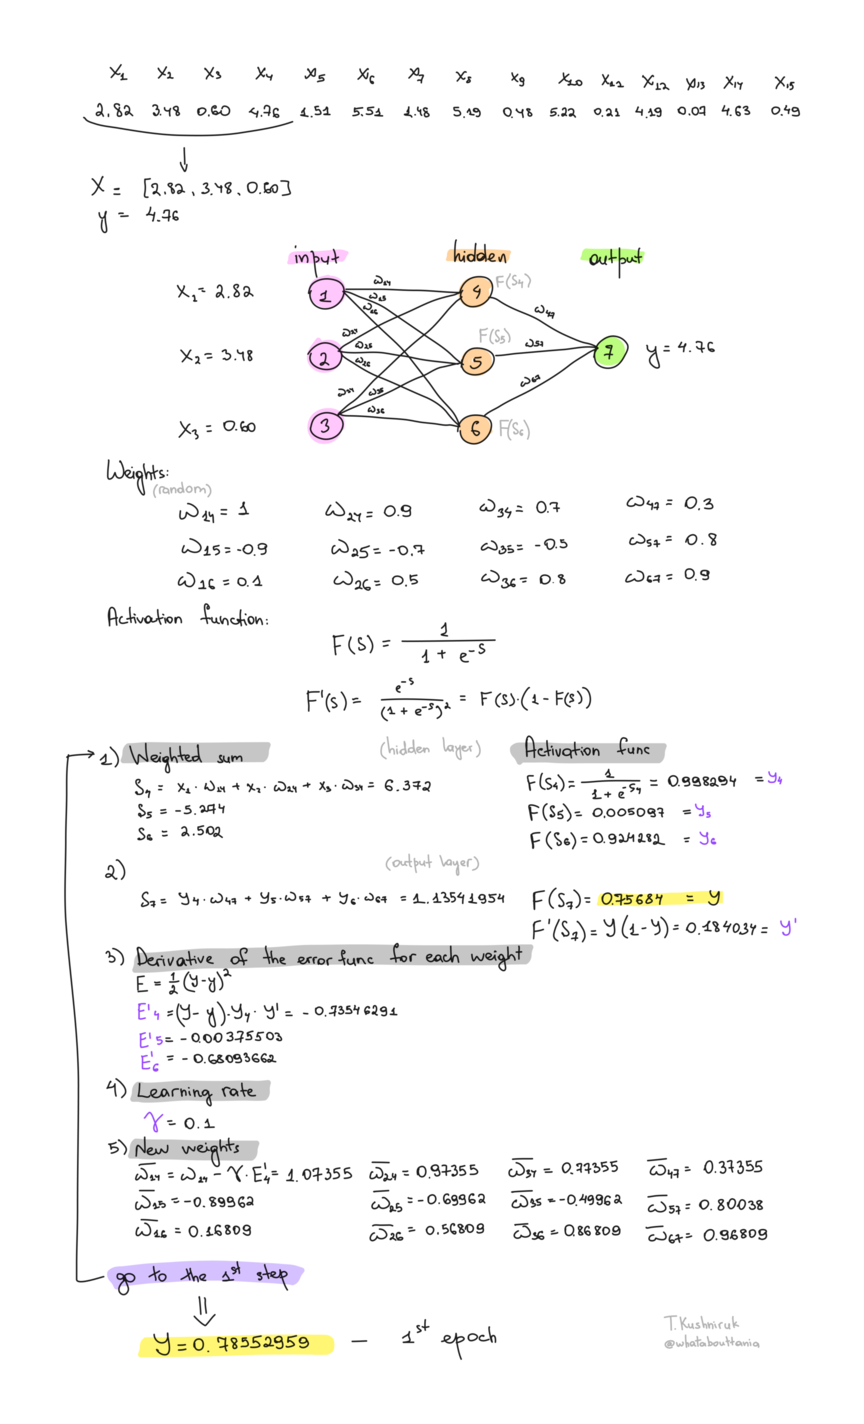 X₁ X₂ X₃ X₄ X₅ X₆ X₇ X₈ X₉ X₁₀ X₁₁ X₁₂ X₁₃ X₁₄ X₁₅
2.82 3.48 0.60 4.76 1.51 5.51 1.48 5.19 0.48 5.22 0.21 4.19 0.07 4.63 0.49
X = [2.82, 3.48, 0.60]
y = 4.76
input hidden output
X₁ = 2.82 1 ω₁₄ ω₁₅ ω₁₆ 4 F(S₄) ω₄₇
X₂ = 3.48 2 ω₂₄ ω₂₅ ω₂₆ 5 F(S₅) ω₅₇ 7 y = 4.76
X₃ = 0.60 3 ω₃₄ ω₃₅ ω₃₆ 6 F(S₆) ω₆₇
Weights:
(random)
ω₁₄ = 1 ω₂₄ = 0.9 ω₃₄ = 0.7 ω₄₇ = 0.3
ω₁₅ = -0.9 ω₂₅ = -0.7 ω₃₅ = -0.5 ω₅₇ = 0.8
ω₁₆ = 0.1 ω₂₆ = 0.5 ω₃₆ = 0.8 ω₆₇ = 0.9
Activation function:
F(S) = 1 / (1 + e^-S)
F'(S) = e^-S / (1 + e^-S)² = F(S)·(1 - F(S))
1) Weighted sum (hidden layer) Activation func
S₄ = X₁·ω₁₄ + X₂·ω₂₄ + X₃·ω₃₄ = 6.372 F(S₄) = 1 / (1 + e^-S₄) = 0.998294 = y₄
S₅ = -5.274 F(S₅) = 0.005097 = y₅
S₆ = 2.502 F(S₆) = 0.924282 = y₆
2) (output layer)
S₇ = y₄·ω₄₇ + y₅·ω₅₇ + y₆·ω₆₇ = 1.13541954 F(S₇) = 0.75684 = Y
F'(S₇) = Y(1-Y) = 0.184034 = Y'
3) Derivative of the error func for each weight
E = ½(Y-y)²
E'₄ = (Y-y)·y₄·Y' = -0.73546291
E'₅ = -0.00375503
E'₆ = -0.68093662
4) Learning rate
γ = 0.1
5) New weights
ω̅₁₄ = ω₁₄ - γ·E'₄ = 1.07355 ω̅₂₄ = 0.97355 ω̅₃₄ = 0.77355 ω̅₄₇ = 0.37355
ω̅₁₅ = -0.89962 ω̅₂₅ = -0.69962 ω̅₃₅ = -0.49962 ω̅₅₇ = 0.80038
ω̅₁₆ = 0.16809 ω̅₂₆ = 0.56809 ω̅₃₆ = 0.86809 ω̅₆₇ = 0.96809
go to the 1st step
Y = 0.78552959 – 1st epoch
T.Kushniruk
@whatabouttania